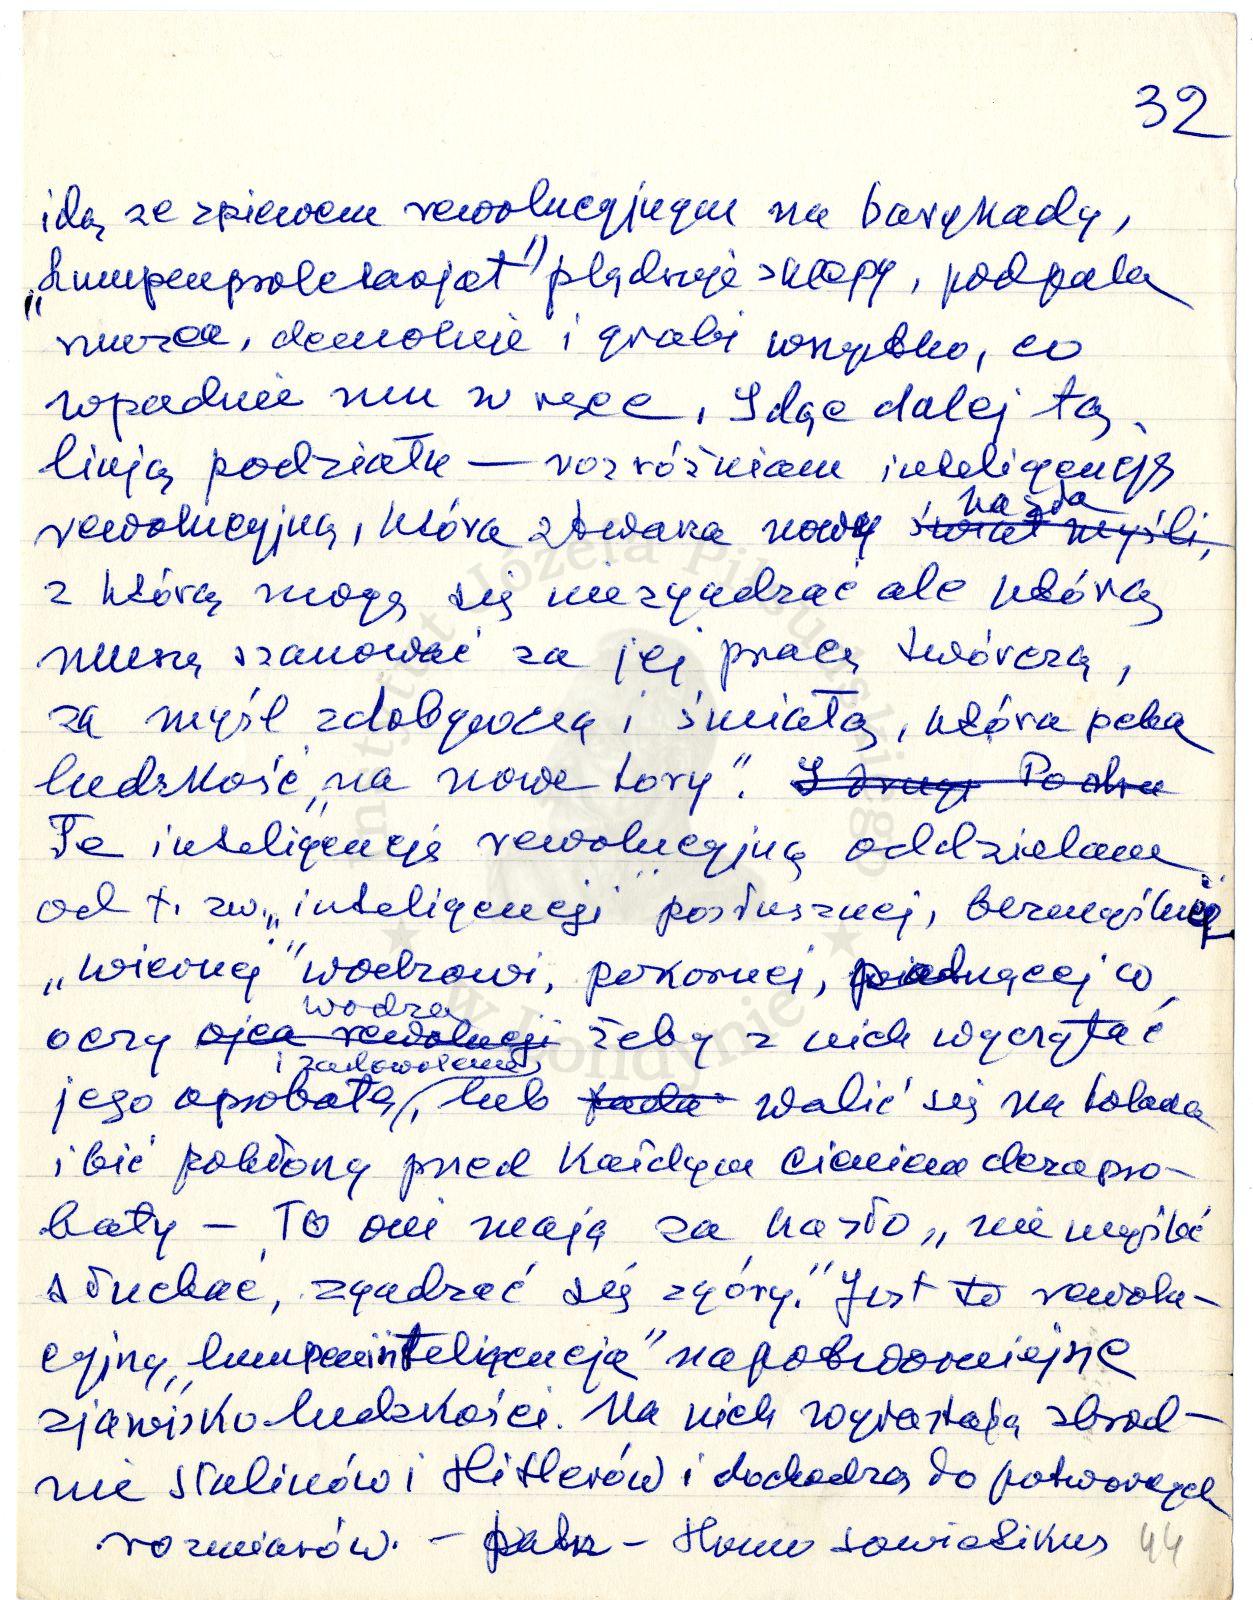 32
idą ze śpiewem rewolucyjnym na barykady,
„Lumpenproletariat" plądruje sklepy, podpala
muzea, demoluje i grabi wszystko, co
wpadnie mu w ręce, Idąc dalej tą
linją podziału — rozróżniam inteligencję
hasła
rewolucyjną, która stwarza nowy świat myśli,
z którą mogę się niezgadzać ale którą
muszę szanować za jej pracę twórczą,
za myśl zdobywczą i śmiałą, która pcha
ludzkość „na nowe tory". I drugi Po dru
Tę inteligencję rewolucyjną oddzielam
od t. zw. „inteligencji" posłusznej, bezmyślnej
„wiernej" wodzowi, pokornej, patrzącej w
wodza
oczy ojca rewolucji żeby z nich wyczytać
i zadowolenie
jego aprobatę, lub walić się na kolana
i bić pokłony przed każdym cieniem dezapro-
baty — To oni mają za hasło „nie myśleć
słuchać, zgadzać się zgóry." Jest to rewolu-
cyjną „lumpeninteligencja" najpotworniejsze
zjawisko ludzkości. Na nich wyrastają zbrod-
nie Stalinów i Hitlerów i dochodzą do potwornych
rozmiarów. — patrz — Homo sowietikus 44
Instytut Józefa Piłsudskiego
w Londynie